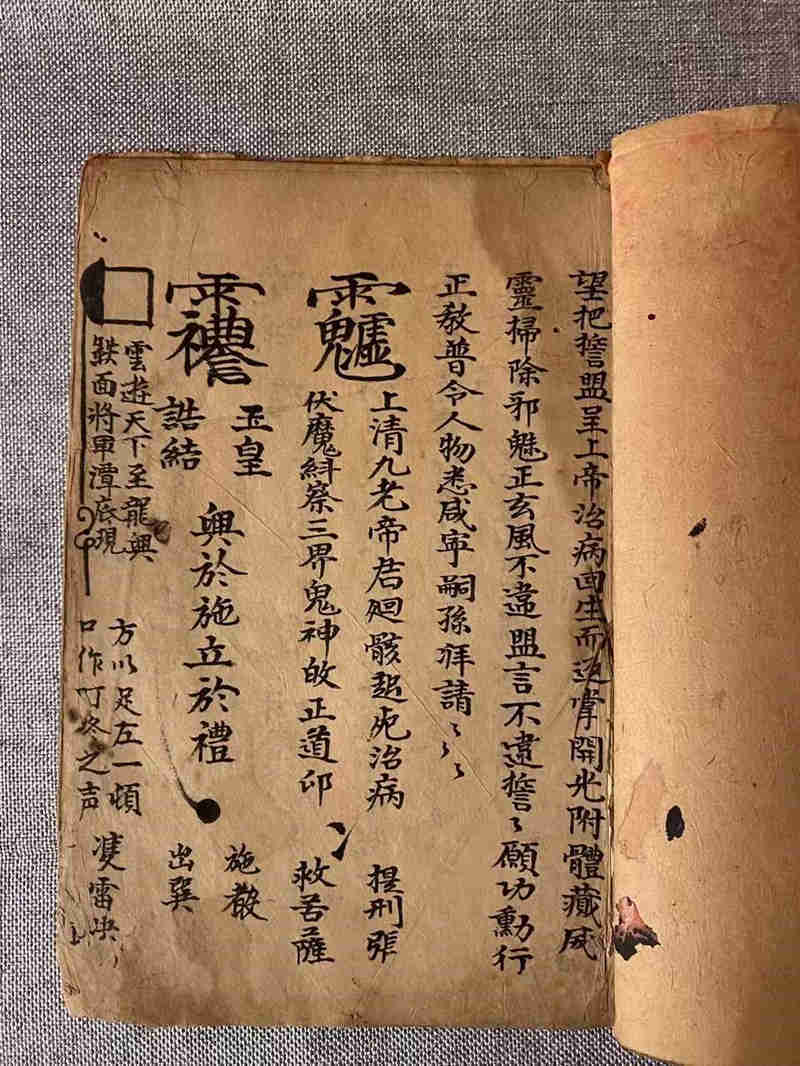 望把誓盟呈上帝治病回生而逆掌開光附體藏威
靈掃除邪魅正玄風不違盟言不違誓〻願功勳行
正教普令人物悉咸寧嗣孫拜請〻〻〻
上清九老帝君廻骸起死治病 提刑張
伏魔糾察三界鬼神的正道卯 救苦薩
玉皇
誥結
興於施立於禮
施教
出巽
雲遊天下至龍興
鉄面將軍潭底現
方以足左一頓
口作叮咚之声
雙雷